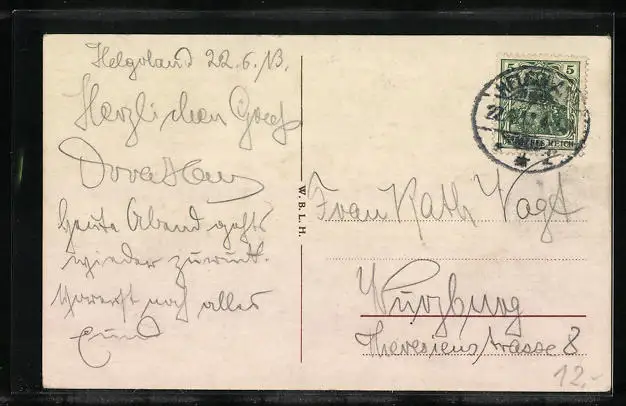 Helgoland 22.6.13.
Herzlichen Gruß
Heute Abend gehts
wieder zurück.
noch alles
W.B.L.H.
5 5
DEUTSCHES REICH
Frau Kath Vogt
Würzburg
Theresienstrasse 8
12.-